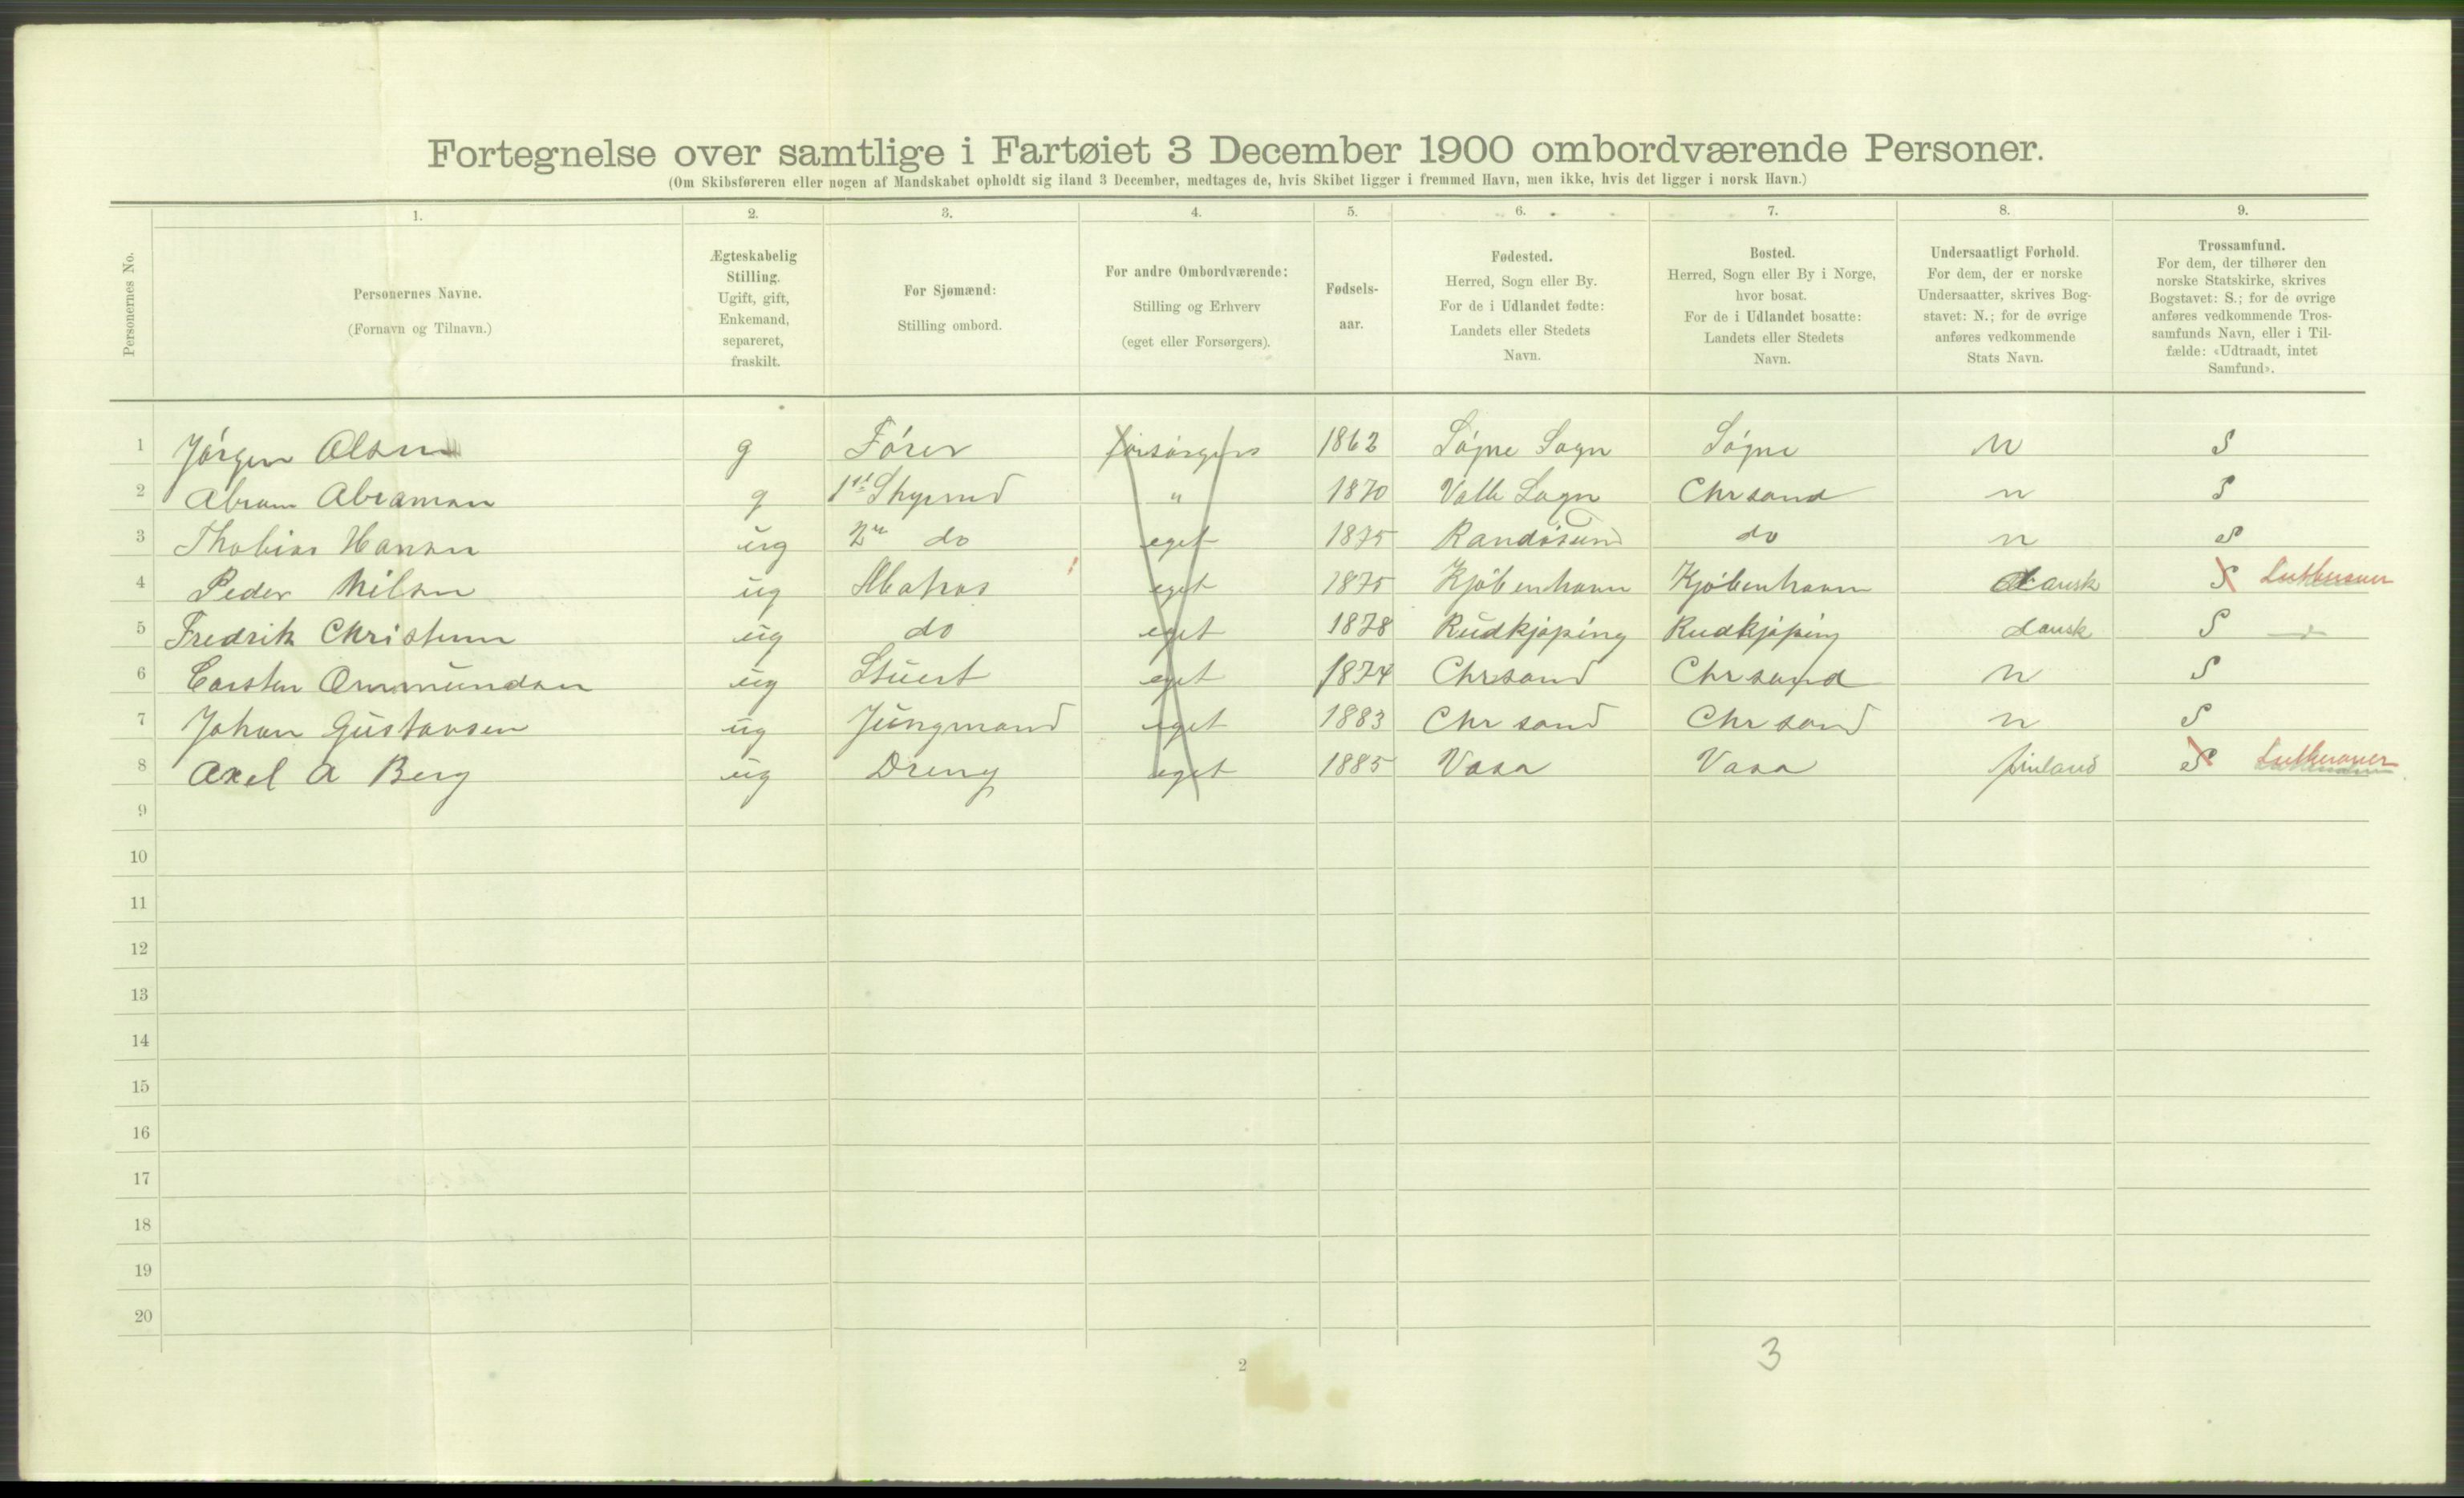 Fortegnelse over samtlige i Fartøiet 3 December 1900 ombordværende Personer.
(Om Skibsføreren eller nogen af Mandskabet opholdt sig iland 3 December, medtages de, hvis Skibet ligger i fremmed Havn, men ikke, hvis det ligger i norsk Havn.)
Personernes No.
1. 2. 3. 4. 5. 6. 7. 8. 9.
Personernes Navne.
(Fornavn og Tilnavn.)
Ægteskabelig
Stilling.
Ugift, gift,
Enkemand,
separeret,
fraskilt.
For Sjømænd:
Stilling ombord.
For andre Ombordværende:
Stilling og Erhverv
(eget eller Forsørgers).
Fødsels-
aar.
Fødested.
Herred, Sogn eller By.
For de i Udlandet fødte:
Landets eller Stedets
Navn.
Bosted.
Herred, Sogn eller By i Norge,
hvor bosat.
For de i Udlandet bosatte:
Landets eller Stedets
Navn.
Undersaatligt Forhold.
For dem, der er norske
Undersaatter, skrives Bog-
stavet: N.; for de øvrige
anføres vedkommende
Stats Navn.
Trossamfund.
For dem, der tilhører den
norske Statskirke, skrives
Bogstavet: S.; for de øvrige
anføres vedkommende Tros-
samfunds Navn, eller i Til-
fælde: «Udtraadt, intet
Samfund».
1 Jörgen Olsen g Förer forsörgers 1862 Sögne Sogn Sögne N S
2 Abram Abramsen g 1st Styrmd " 1870 Valle Sogn Chrsand n S
3 Thobias Hansen ug 2n do eget 1875 Randösund do n S
4 Peder Nilsen ug Matros eget 1875 Kjöbenhavn Kjöbenhavn dansk S Lutheraner
5 Fredrik Christensen ug do eget 1878 Rudkjöping Rudkjöping dansk S
6 Carsten Ommundsen ug Stuert eget 1874 Chrsand Chrsand N S
7 Johan Gustavsen ug Jungmand eget 1883 Chrsand Chrsand n S
8 Axel A Berg ug Dreng eget 1885 Vasa Vasa finland S Lutheraner
9
10
11
12
13
14
15
16
17
18
19
20
2
3